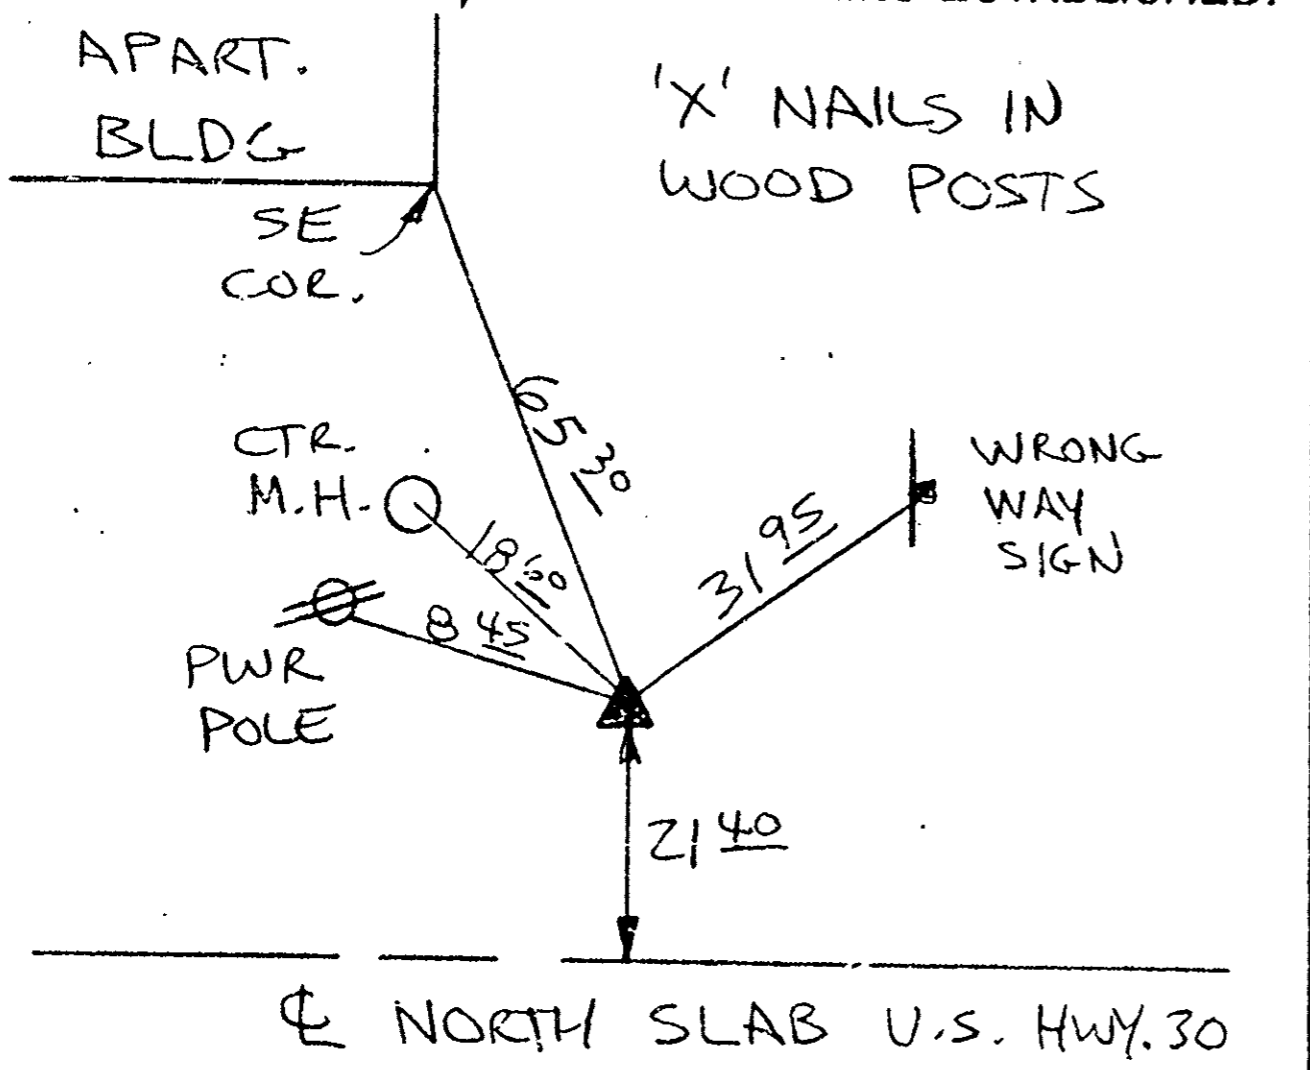 ESTABLISHED.
APART.
BLDG
'X' NAILS IN
WOOD POSTS
SE
COR.
65 30
CTR.
M.H.
WRONG
WAY
SIGN
18 60
31 95
8 45
PWR
POLE
21 40
℄ NORTH SLAB U.S. HWY. 30